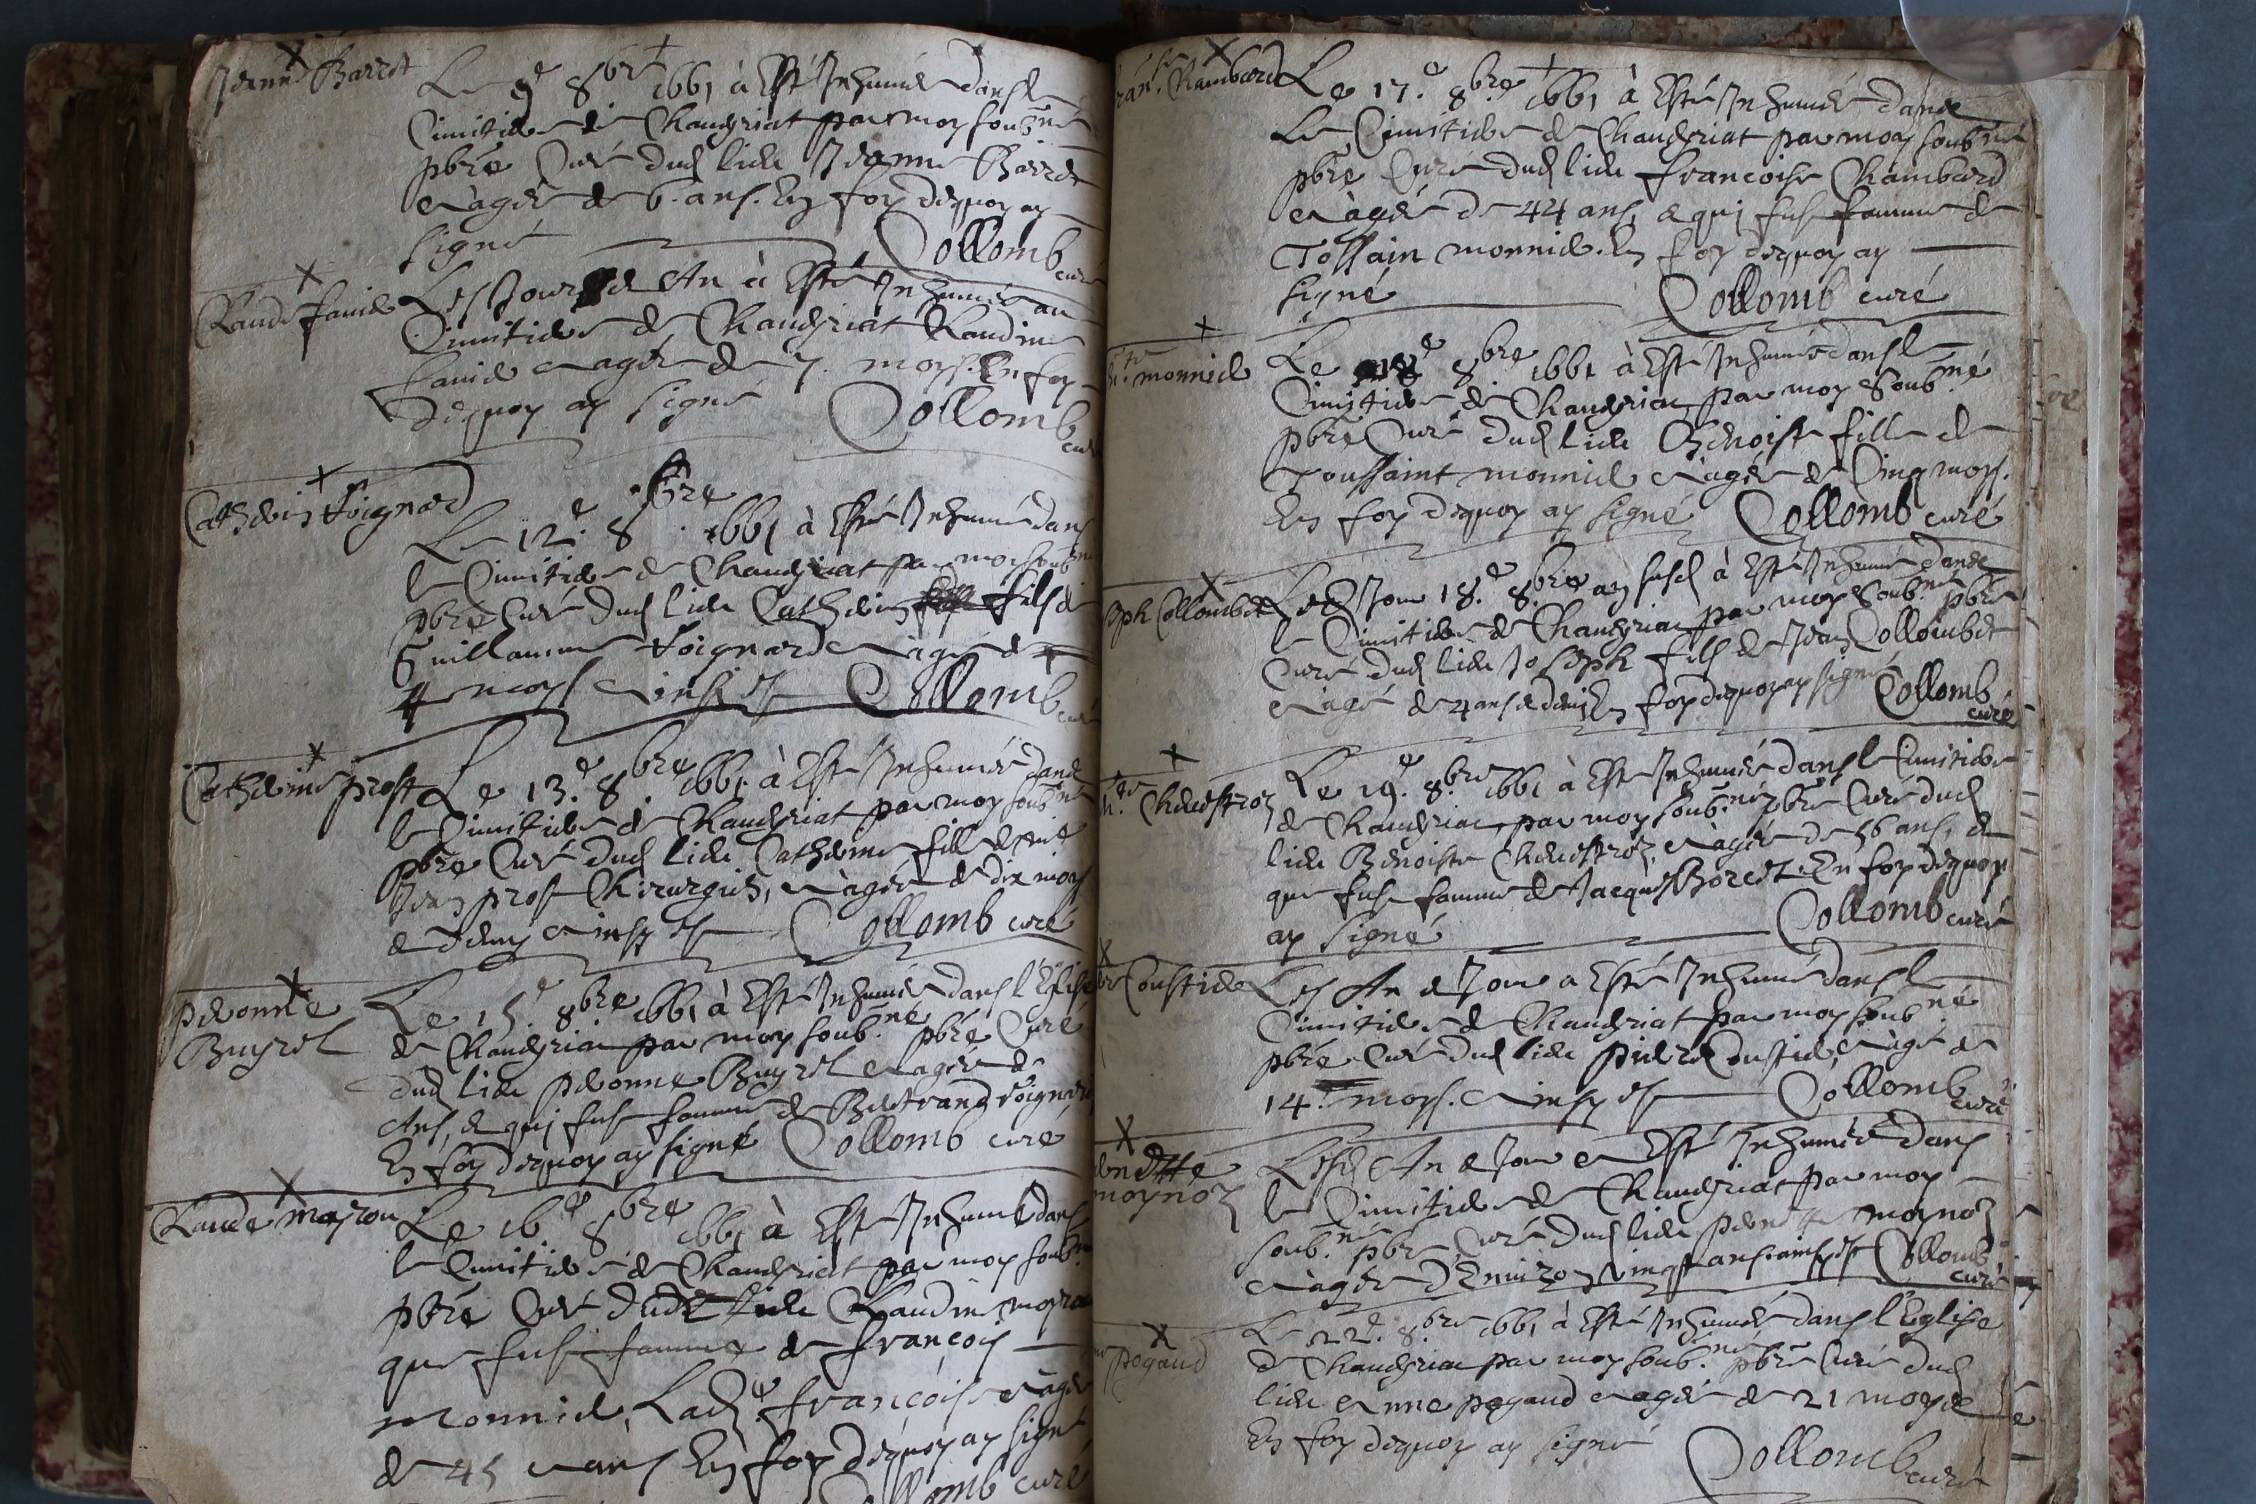 Jeanne Barret
Le 9e 8bre 1661 à Esté Inhumée dans le
Cimitiere de Chaveyriat par moy soubné
pbre Curé dud lieu Jeanne Barret
eagée de 6. ans. En foy dequoy ay
signé Collomb curé
Claude favier
Lesd Jour et An à Esté Inhumée au
Cimitiere de Chaveyriat Claudine
favier eagée de 7. moys. En foy
dequoy ay signé Collomb curé
Catherin Voignard
Le 12.e 8bre 1661 à Esté Inhumé dans
le Cimitiere de Chaveyriat par moy soubné
pbre Curé dud lieu Catherin fils de
Guillaume Voignard eagé de
4 moys Ainsy est Collomb curé
Catherine prost
Le 13.e 8bre 1661 à Esté Inhumée dans
le Cimitiere de Chaveyriat par moy soubné
pbre Curé dud lieu Catherine fille de
Jean prost Chirurgien, eagée de dix moys
et demy Ainsy est Collomb curé
peronne
Buyret
Le 15.e 8bre 1661 à Esté Inhumée dans l'Eglise
de Chaveyriat par moy soubné pbre Curé
dud lieu peronne Buyret eagée de
Ans, et qui fust femme de Bertrand Voignard
En foy dequoy ay signé Collomb curé
Claude moyron
Le 16.e 8bre 1661 à Esté Inhumée dans
le Cimitiere de Chaveyriat par moy soubné
pbre Curé dud lieu Claudine moyron
que fust femme de françois
monnier, eagée
de 45 ans En foy dequoy ay signé
Collomb curé
franse Chambard
Le 17.e 8bre 1661 à Esté Inhumée dans
Le Cimitiere de Chaveyriat par moy soubné
pbre Curé dud lieu francoise Chambard
eagée de 44 ans, et qui fust femme de
Tossain monnier. En foy dequoy ay
signé Collomb curé
monnier
Le 18e 8bre 1661 à Esté Inhumée dans le
Cimitiere de Chaveyriat par moy soubné
pbre Curé dud lieu Benoiste fille de
Toussaint monnier eagée de Cinq moys.
En foy dequoy ay signé Collomb curé
seph Collombet
Led Jour 18.e 8bre an susd à Esté Inhumé dans
le Cimitiere de Chaveyriat par moy soubné pbre
Curé dud lieu Joseph fils de Jean Collombet
eagé de 4 ans et demi En foy dequoy ay signé Collomb
curé
Chevestroz
Le 19.e 8bre 1661 à Esté Inhumée dans le Cimitiere
de Chaveyriat par moy soubné pbre Curé dud
lieu Benoiste Chevestroz, eagée de 56 ans, et
que fust femme de Jacques Boret. En foy dequoy
ay signé Collomb curé
Coustier
Lesd An et Jour a Esté Inhumé dans le
Cimitiere de Chaveyriat par moy soubné
pbre Curé dud lieu pierre Coustier, eagé de
14. moys. Ainsy est Collomb
curé
ernette
moynoz
Lesd An et Jour a Esté Inhumée dans
le Cimitiere de Chaveyriat par moy
soubné pbre Curé dud lieu pernette moynoz
eagée d'Environ vingt ans ainsy est Collomb
curé
pogaud
Le 22.e 8bre 1661 à Esté Inhumée dans l'Eglise
de Chaveyriat par moy soubné pbre Curé dud
lieu Anne pogaud eagée de 21 moys
En foy dequoy ay signé
Collomb curé